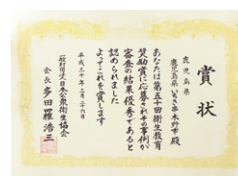 賞状
鹿児島県
鹿児島県いちき串木野市 殿
あなたは第五十回衛生教育
奨励賞に応募されその事例が
審査の結果優秀であると
認められました
よってこれを賞します
平成三十年三月二十六日
一般財団法人日本公衆衛生協会
会長 多田羅浩三